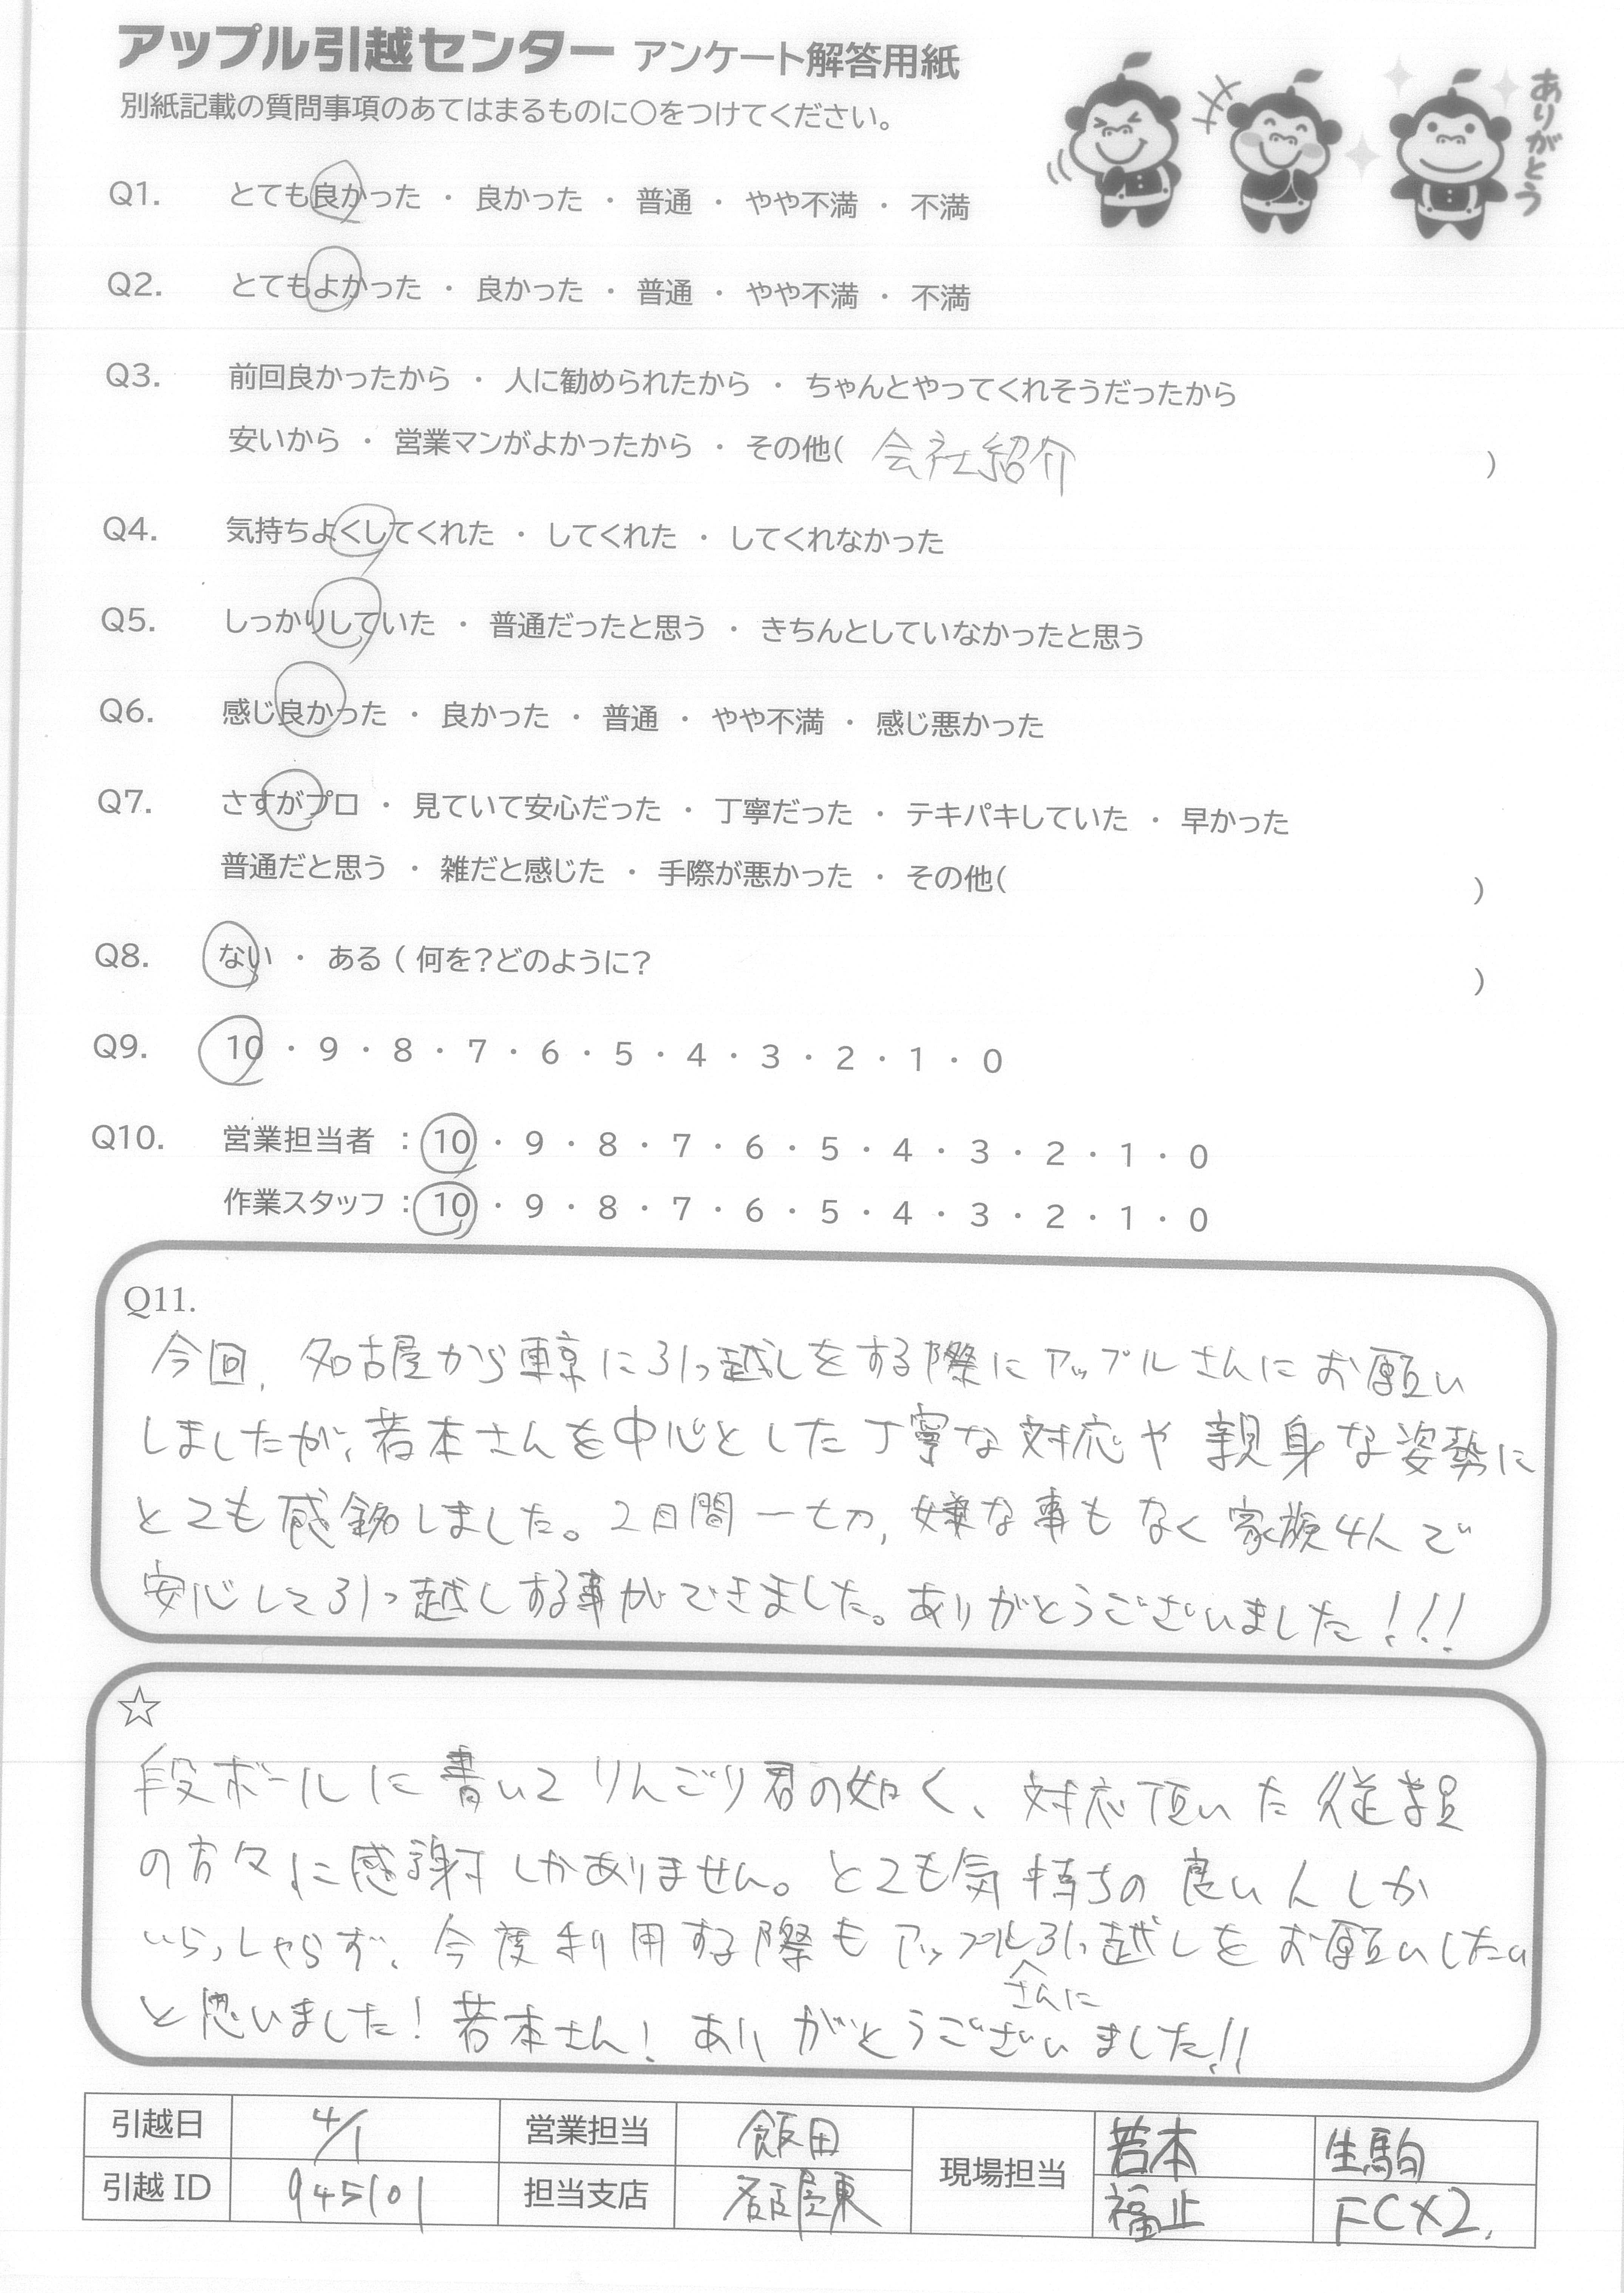 アップル引越センター アンケート解答用紙
ありがとう
別紙記載の質問事項のあてはまるものに〇をつけてください。
Q1. とても良かった ・ 良かった ・ 普通 ・ やや不満 ・ 不満
Q2. とてもよかった ・ 良かった ・ 普通 ・ やや不満 ・ 不満
Q3. 前回良かったから ・ 人に勧められたから ・ ちゃんとやってくれそうだったから
安いから ・ 営業マンがよかったから ・ その他( 会社紹介 )
Q4. 気持ちよくしてくれた ・ してくれた ・ してくれなかった
Q5. しっかりしていた ・ 普通だったと思う ・ きちんとしていなかったと思う
Q6. 感じ良かった ・ 良かった ・ 普通 ・ やや不満 ・ 感じ悪かった
Q7. さすがプロ ・ 見ていて安心だった ・ 丁寧だった ・ テキパキしていた ・ 早かった
普通だと思う ・ 雑だと感じた ・ 手際が悪かった ・ その他( )
Q8. ない ・ ある ( 何を?どのように? )
Q9. 10 ・ 9 ・ 8 ・ 7 ・ 6 ・ 5 ・ 4 ・ 3 ・ 2 ・ 1 ・ 0
Q10. 営業担当者 : 10 ・ 9 ・ 8 ・ 7 ・ 6 ・ 5 ・ 4 ・ 3 ・ 2 ・ 1 ・ 0
作業スタッフ : 10 ・ 9 ・ 8 ・ 7 ・ 6 ・ 5 ・ 4 ・ 3 ・ 2 ・ 1 ・ 0
Q11.
今回、名古屋から東京に引っ越しをする際にアップルさんにお願い
しましたが、若本さんを中心とした丁寧な対応や親身な姿勢に
とても感銘しました。2日間一切、嫌な事もなく家族4人で
安心して引っ越しする事ができました。ありがとうございました!!!
☆
段ボールに書いてりんごり君の如く、対応頂いた従業員
の方々に感謝しかありません。とても気持ちの良い人しか
いらっしゃらず、今度利用する際もアップル引っ越しをお願いしたい
さんに
と思いました!若本さん!ありがとうございました!!
引越日 4/1 営業担当 飯田 現場担当 若本 生駒
引越ID 945101 担当支店 名古屋東 福止 FC×2.